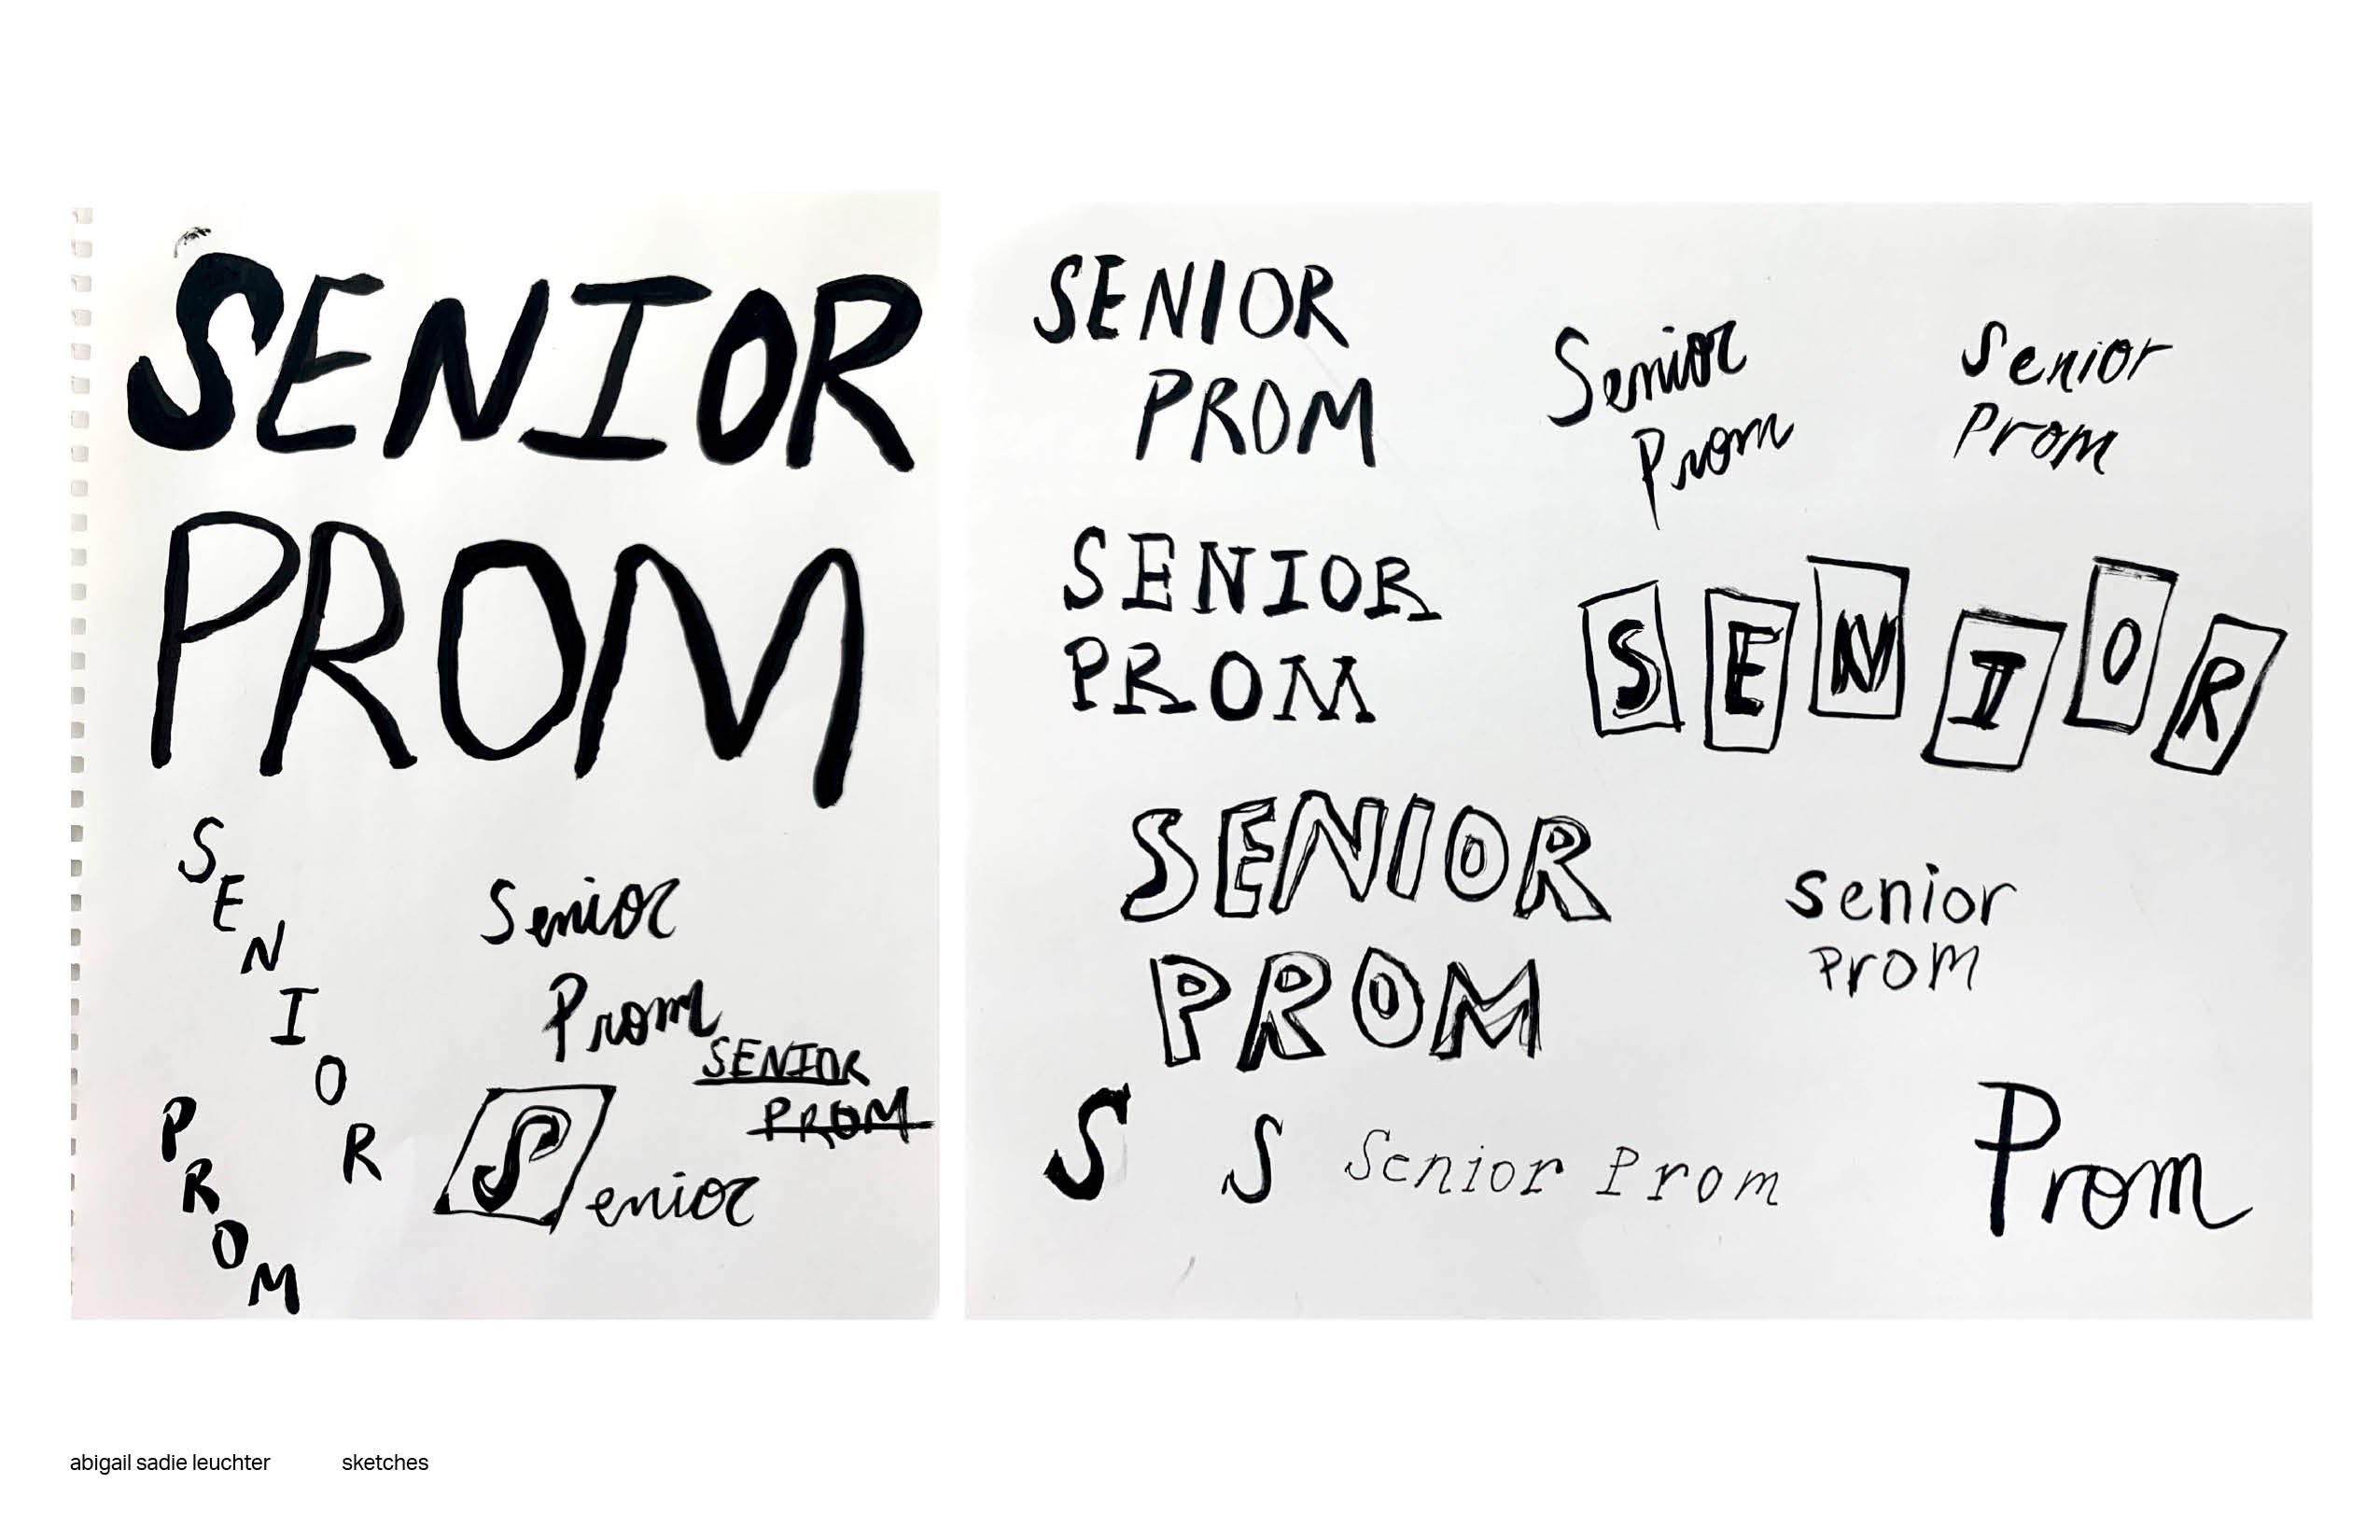 SENIOR
PROM
SENIOR
PROM
Senior
Prom
SENIOR
PROM
Senior
SENIOR
PROM
Senior
Prom
Senior
Prom
SENIOR
PROM
SENIOR
SENIOR
PROM
senior
prom
S S Senior Prom
Prom
abigail sadie leuchter sketches